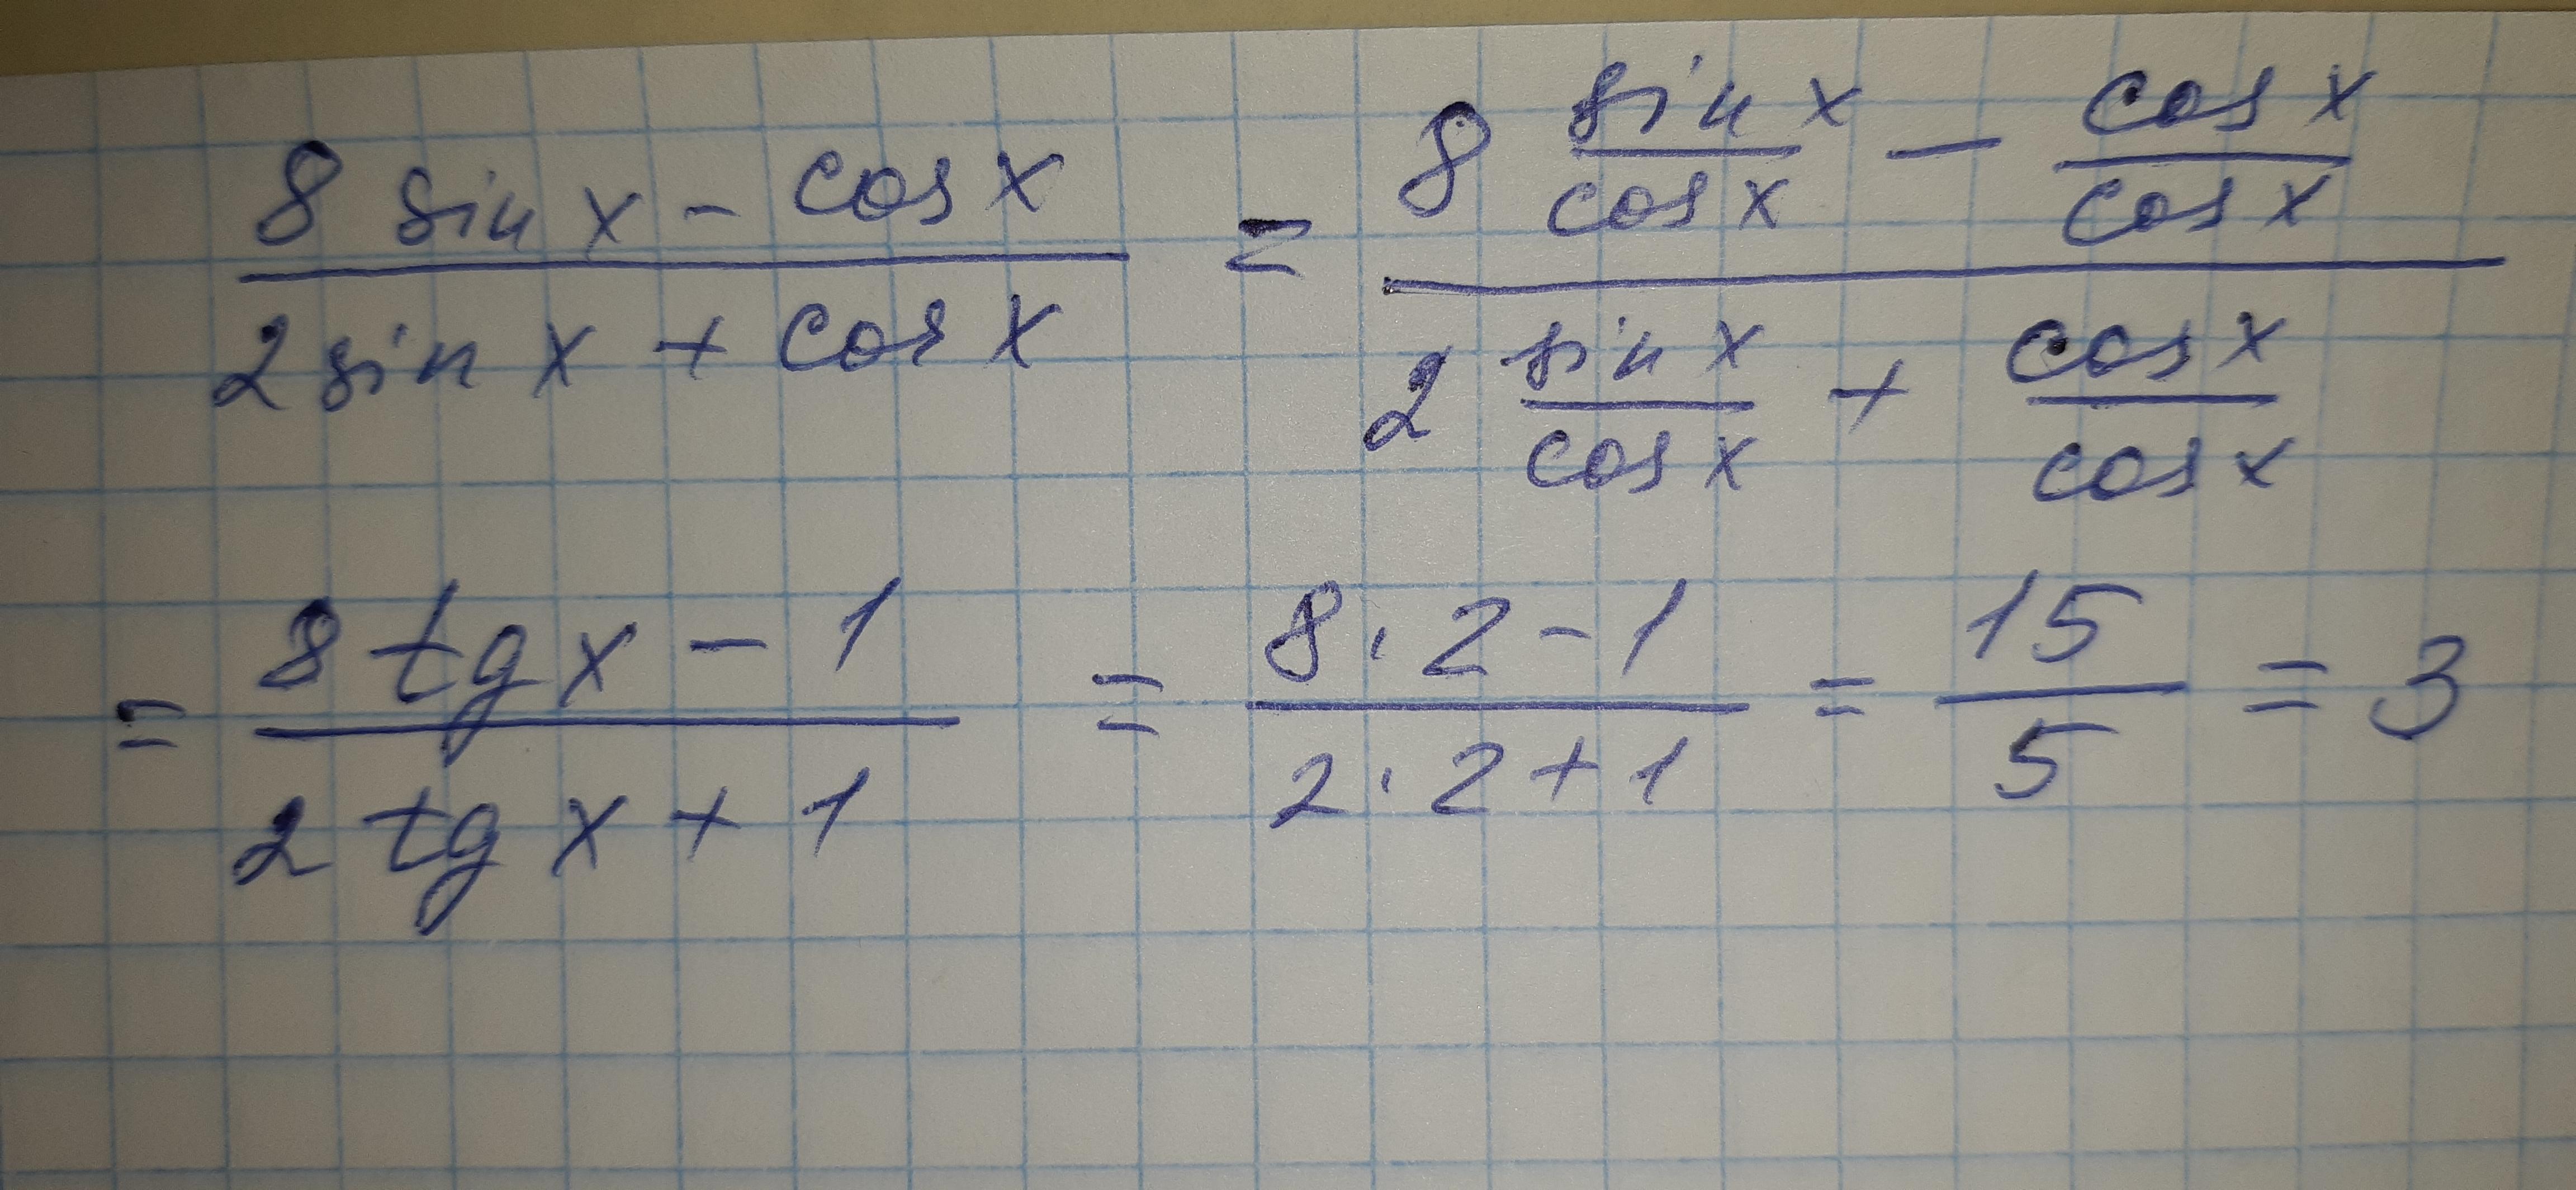 (8 sin x - cos x)/(2 sin x + cos x) = (8 (sin x)/(cos x) - (cos x)/(cos x))/(2 (sin x)/(cos x) + (cos x)/(cos x))
= (8 tg x - 1)/(2 tg x + 1) = (8 · 2 - 1)/(2 · 2 + 1) = 15/5 = 3